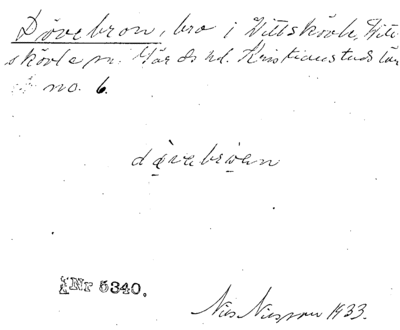 Dövebron, bro i Vittskövle, Vitt-
skövle sn. Gärds hd. Kristianstads län
no. 6.
dø̣vebrọen
Nr 5340.
Nils Nilsson 1933.